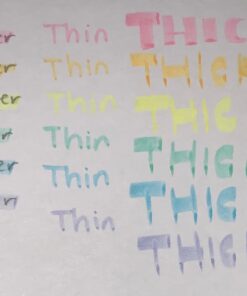 er Thin THIC
er Thin THICK
er Thin THIC
er Thin THIC
er Thin THIC
er Thin THIC